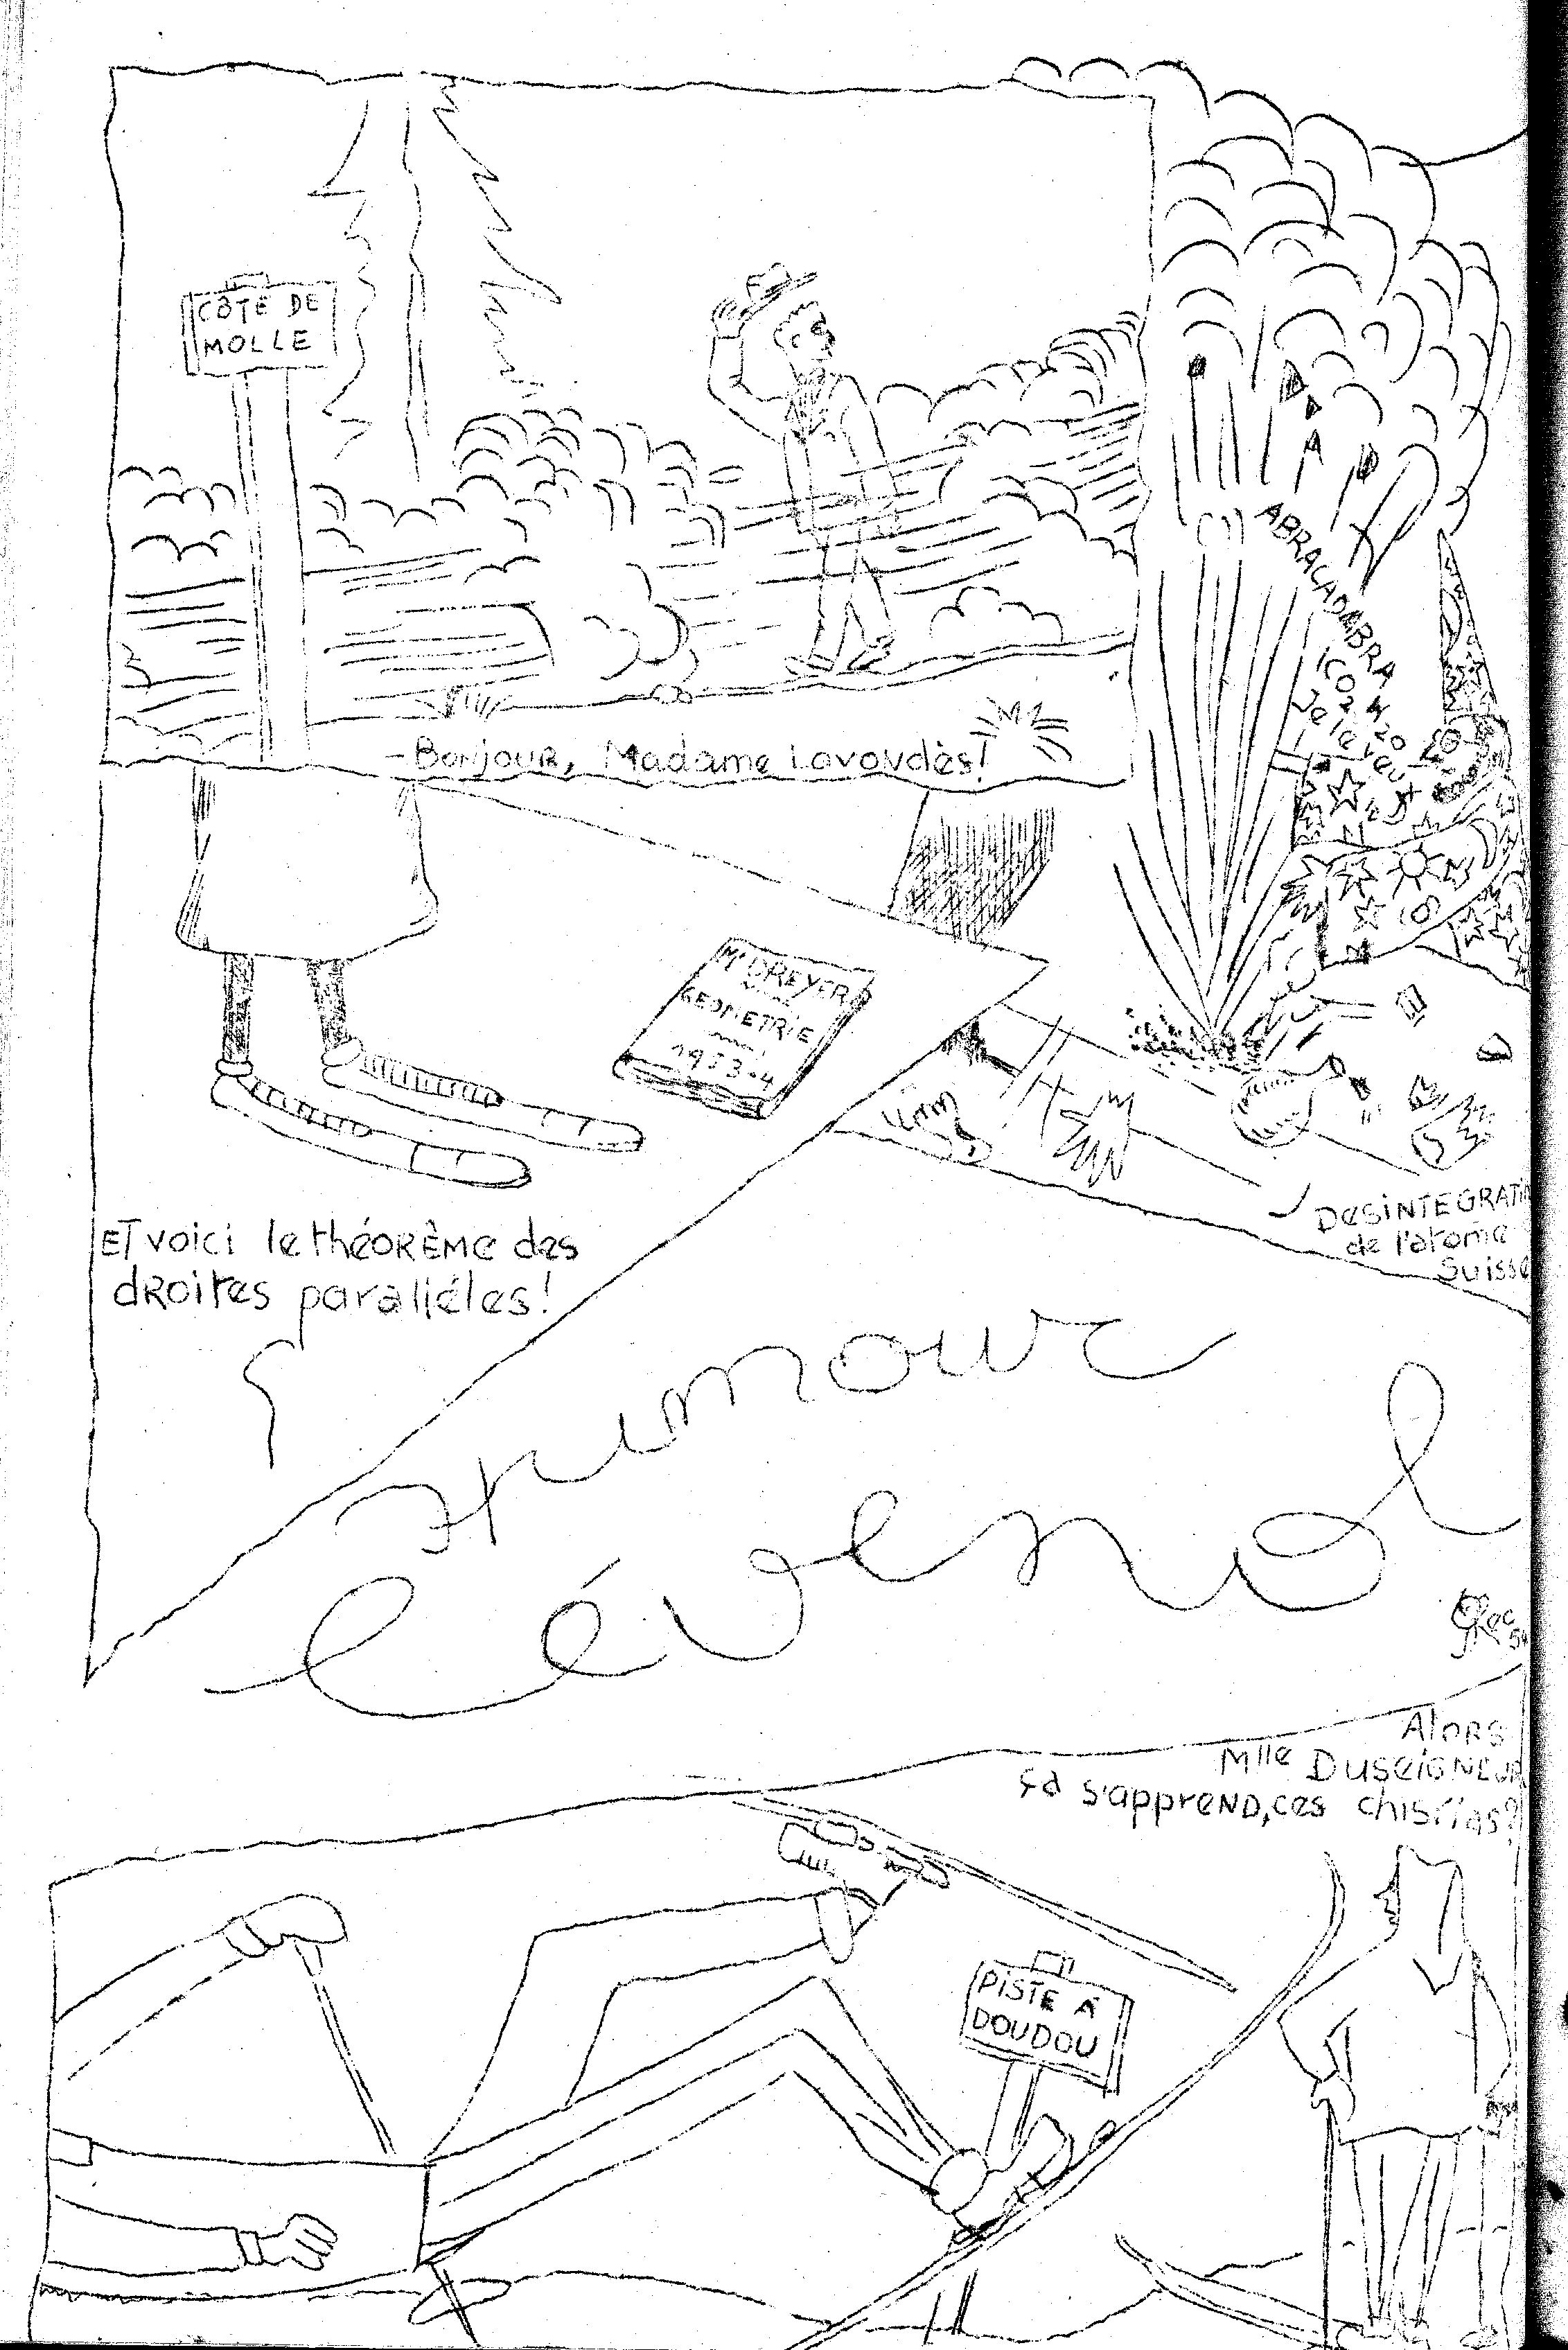 CÔTE DE
MOLLE
- Bonjour, Madame Lavondès!
ABRACADABRA
1CO2 H20
Je le veux
Mr DREYER
GEOMETRIE
1953-4
ET voici le théorème des
droites paralléles!
DesINTEGRATI
de l'atome
Suisse
Humour
Cévenol
Grec
54
Alors
Mlle Duseigneur
ça s'apprend, ces
PISTE À
DOUDOU